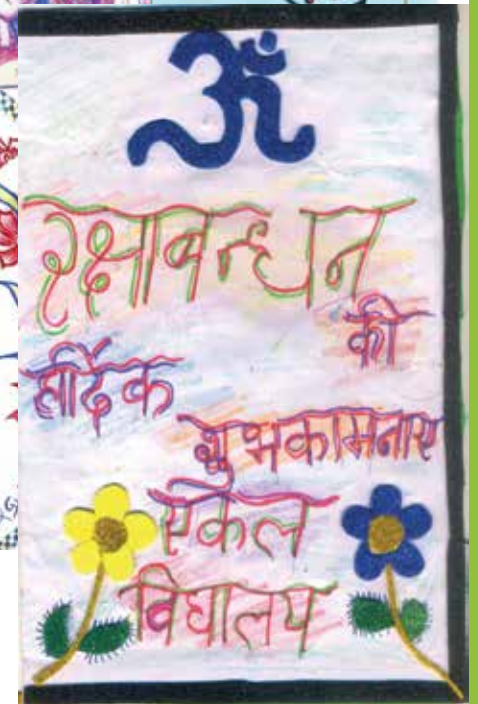 ॐ
रक्षाबन्धन
की
हार्दिक
शुभकामनाए
एकल
विद्यालय